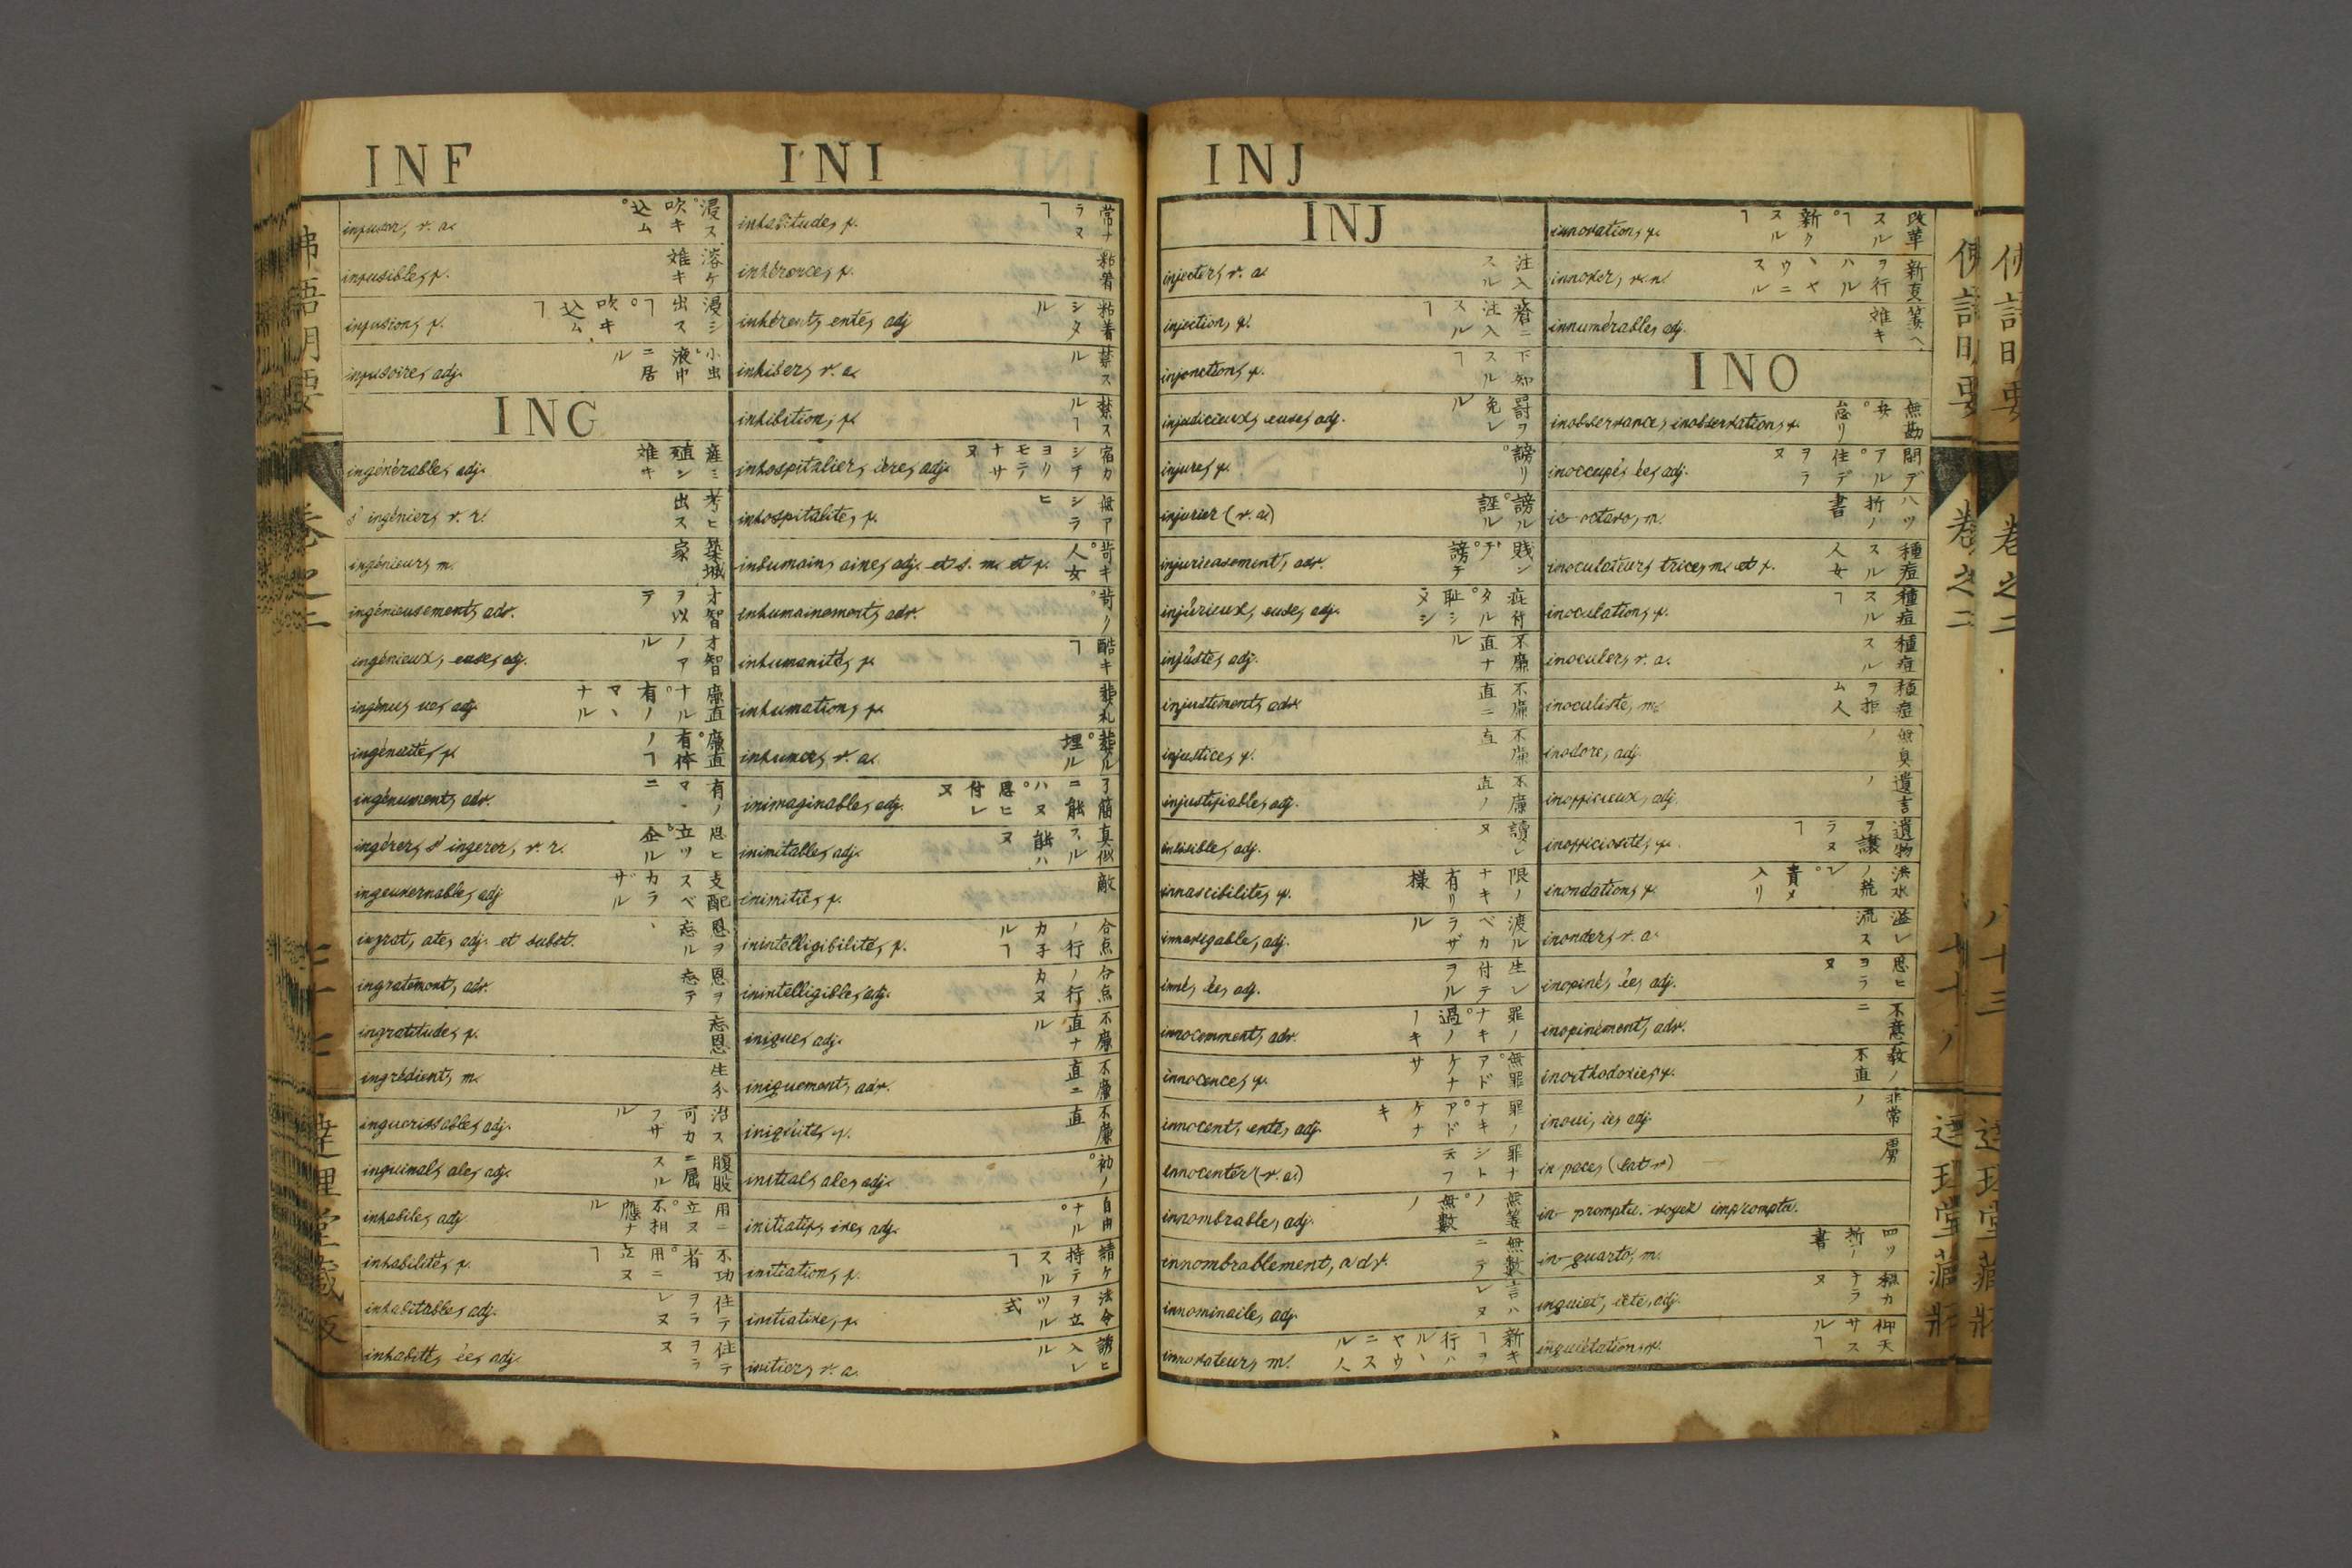 INF
INI
infuser, v. a. 浸ス。吹キ込ム。
infusible, f. 溶ケ難キ
infusion, f. 浸シ出スヿ。吹キ込ムヿ
infusoire, adj. 小虫液中ニ居ル
ING
ingénérable, adj. 産ミ殖シ難キ
s'ingénier, v. r. 考ヒ出ス
ingénieur, m. 築城家
ingénieusement, adv. 才智ヲ以テ
ingénieux, euse, adj. 才智ノアル
ingénu, ue, adj. 廉直ナル。有ノマヽナル
ingénuité, f. 廉直。有体ノヿ
ingénument, adv. 有ノマヽニ
ingérer, s'ingerer, v. r. 思ヒ立ツ。企ル
ingouvernable, adj. 支配スベカラザル
ingrat, ate, adj. et subst. 恩ヲ忘ルヽ
ingratement, adv. 恩ヲ忘テ
ingratitude, f. 忘恩
ingrédient, m. 生分
inguerissable, adj. 治ス可カラザル
inguinal, ale, adj. 腹股ニ属スル
inhabile, adj. 用ニ立ヌ。不相應ナル
inhabilité, f. 不功者。用ニ立ヌヿ
inhabitable, adj. 住テヲラレヌ
inhabité, ée, adj. 住テヲラヌ
inhabitude, f. 常ナラヌヿ
inhérence, f. 粘着
inhérent, ente, adj. 粘着シタル
inhiber, v. a. 禁スル
inhibition, f. 禁スルヿ
inhospitalier, ière, adj. 宿カシテヨリモテナサヌ
inhospitalité, f. 無アシラヒ
inhumain, aine, adj. et s. m. et f. 苛キ。人女
inhumainement, adv. 苛ク
inhumanité, f. 酷キヿ
inhumation, f. 葬礼
inhumer, v. a. 葬ル。埋ル
inimaginable, adj. 了簡ニ能ハヌ。思ヒ付レヌ
inimitable, adj. 真似スル能ハヌ
inimitié, f. 敵
inintelligibilité, f. 合点ノ行カ子ルヿ
inintelligible, adj. 合点ノ行カヌ
inique, adj. 不廉直ナル
iniquement, adv. 不廉直ニ
iniquité, f. 不廉直
initial, ale, adj. 初ノ
initiatif, ive, adj. 自由ナル。
initiation, f. 請ケ持テスルヿ
initiative, f. 法令ヲ立ツル式
initier, v. a. 誘ヒ入レル
INJ
INJ
injecter, v. a. 注入スル
injection, f. 注入スルヿ
injonction, f. 下知スルヿ
injudicieux, euse, adj. 罸ヲ免レル
injure, f. 謗リ。
injurier (v. a.) 謗ル。誣ル
injurieusement, adv. 賎ンデ。謗テ
injurieux, euse, adj. 疵付タル。恥シヌシ
injuste, adj. 不廉直ナル
injustement, adv. 不廉直ニ
injustice, f. 不廉直
injustifiable, adj. 不廉直ノ
inlisible, adj. 讀レヌ
innascibilité, f. 限ノナキ有リ様
innavigable, adj. 渡ルベカラザル
inné, ée, adj. 生レ付テヲル
innocemment, adv. 罪ノナキ。過ノナキ
innocence, f. 無罪。アドケナサ
innocent, ente, adj. 罪ノナキ。アドケナキ
innocenter (v. a.) 罪ナシト云フ
innombrable, adj. 無算ノ。無數ノ
innombrablement, adv. 無數ニテ
innominaile, adj. 言ハレヌ
innovateur, m. 新キヿヲ行ハルヽヤウニスル人
innovation, f. 改革スルヿ。新クスルヿ
innover, v. n. 新夏ヲ行ハルヽヤウニスル
innumérable, adj. 算ヘ難キ
INO
inobservance, inobservation, f. 無勘弁。怠リ
inoccupé, ée, adj. 閙デアル。住デヲラヌ
in-octavo, m. 八ツ折ノ書
inoculateur, trice, m. et f. 種痘スル人女
inoculation, f. 種痘スルヿ
inoculer, v. a. 種痘スル
inoculiste, m. 種痘ヲ拒ム人
inodore, adj. 無臭ノ
inofficieux, adj. 遺言ノ
inofficiosité, f. 遺物ヲ譲ラヌヿ
inondation, f. 洪水ノ荒レ。責メ入リ
inonder, v. a. 溢レ流ス
inopiné, ée, adj. 思ヒヨラヌ
inopinément, adv. 不意ニ
inorthodoxie, f. 教ノ不直
inoui, ie, adj. 非常ノ
in pace, (lat. v.) 虜
in-promptu. voyez impromptu.
in-quarto, m. 四ツ折ノ書
inquiet, iète, adj. 穏カナラヌ
inquiétation, f. 仰天サスルヿ
佛語明要
巻之二
八十三
達理堂藏版